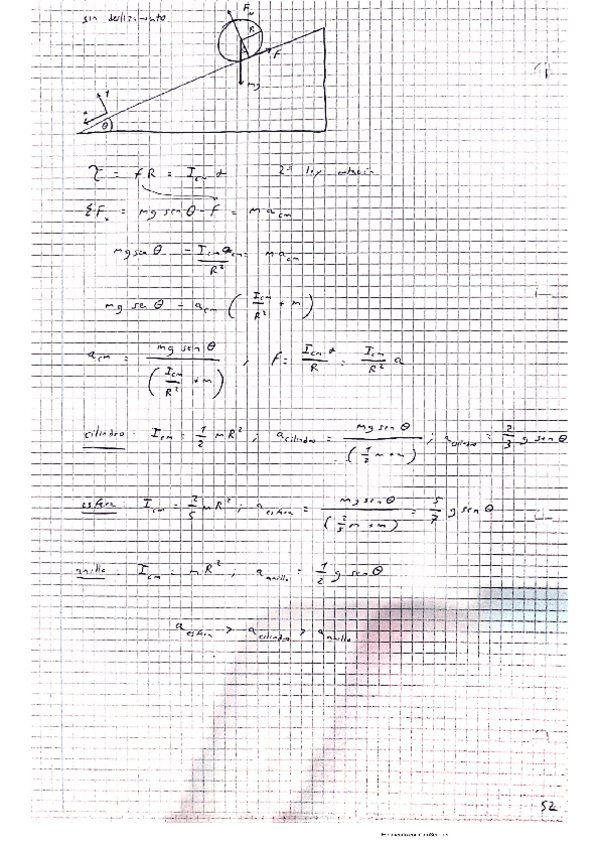 sin deslizamiento
F_N
R
F
mg
θ
τ = f R = I_cm α    2ª ley
ΣF_x = mg sen θ - f = m a_cm
mg sen θ - I_cm a_cm / R² = m a_cm
mg sen θ = a_cm ( I_cm / R² + m )
a_cm = mg sen θ / ( I_cm / R² + m ) ; f = I_cm α / R = I_cm / R² a
cilindro I_cm = 1/2 m R² ; a_cilindro = mg sen θ / ( 1/2 m + m ) ; a_cilindro = 2/3 g sen θ
esfera I_cm = 2/5 m R² ; a_esfera = mg sen θ / ( 2/5 m + m ) = 5/7 g sen θ
anillo : I_cm = m R² ; a_anillo = 1/2 g sen θ
a_esfera > a_cilindro > a_anillo
52